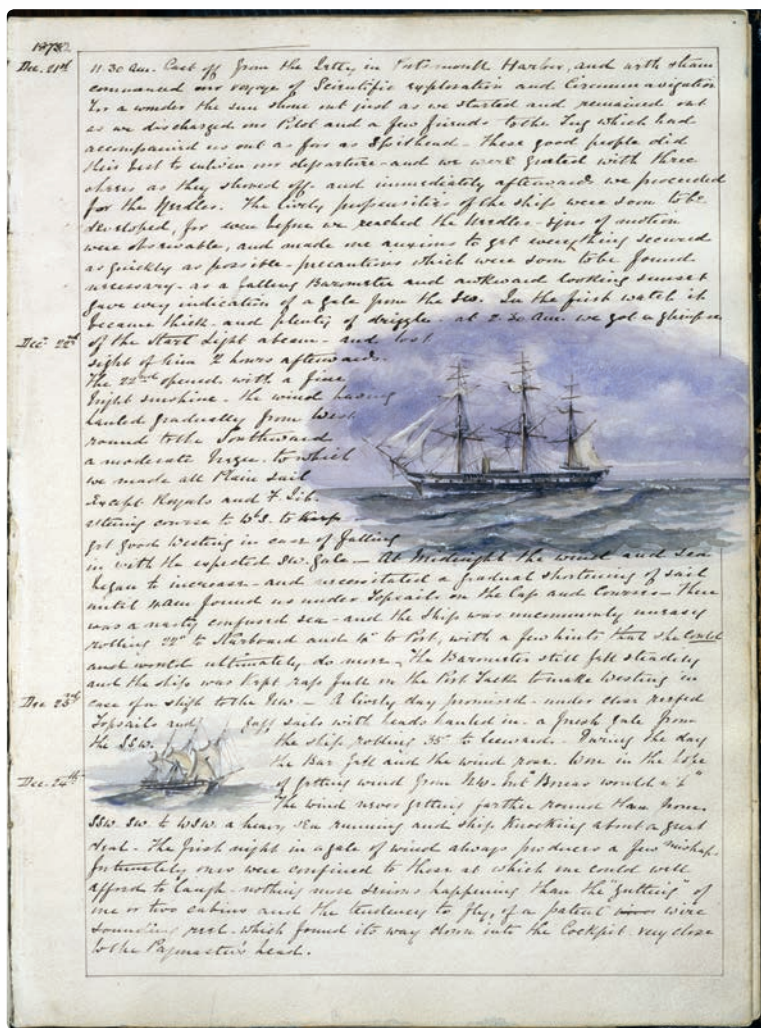 1872
Dec. 21st
11.30 Am. Cast off from the Jetty in Portsmouth Harbor, and with steam
commenced our voyage of Scientific exploration and Circumnavigation
For a wonder the sun shone out just as we started and remained out
as we discharged our Pilot and a few friends to the Tug which had
accompanied us out as far as Spithead - These good people did
their best to enliven our departure - and we were greeted with three
cheers as they shoved off - and immediately afterwards we proceeded
for the Needles. The lively propensities of the ship were soon to be
developed, for even before we reached the Needles - signs of motion
were observable, and made me anxious to get everything secured
as quickly as possible - precautions which were soon to be found
necessary - as a falling Barometer and awkward looking sunset
gave every indication of a gale from the SW. In the first watch it
became thick - and plenty of drizzle - at 2.30 Am. we got a glimpse
Dec. 22nd
of the Start Light abeam - and lost
sight of him 2 hours afterwards.
The 22nd opened with a fine
bright sunshine - the wind having
hauled gradually from West
round to the Southward
a moderate breeze - to which
we made all Plain sail
except Royals and F. Jib
steering course to W'S. to
get good Westing in case of falling
in with the expected SW. gale — At Midnight the wind and sea
began to increase - and necessitated a gradual shortening of sail
until 4am found us under Topsails on the Cap and Courses - There
was a nasty confused sea - and the Ship was uncommonly uneasy
rolling 22° to Starboard and to Port, with a few hints that she could
and would ultimately do more - The Barometer still fell steadily
and the ship was kept rap full on the Port Tack to make Westing in
Dec 23rd
case of a shift to the NW. — A lively day promised - under close reefed
Topsails and gaff sails with heads hauled in - a fresh gale from
the SSW. the ship rolling 35° to leeward. During the day
the Bar fell and the wind rose. Wore in the hope
Dec. 24th
of getting wind from NW. but "Boreas wouldn't"
The wind never getting farther round than from
SSW. SW. to WSW. a heavy sea running and ship knocking about a great
deal - The first night in a gale of wind always produces a few mishaps.
fortunately ours were confined to those at which one could well
afford to laugh - nothing more serious happening than the "gutting" of
one or two cabins and the tendency to fly, of a patent wire
sounding reel - which found its way down into the Cockpit very close
to the Paymaster's head.